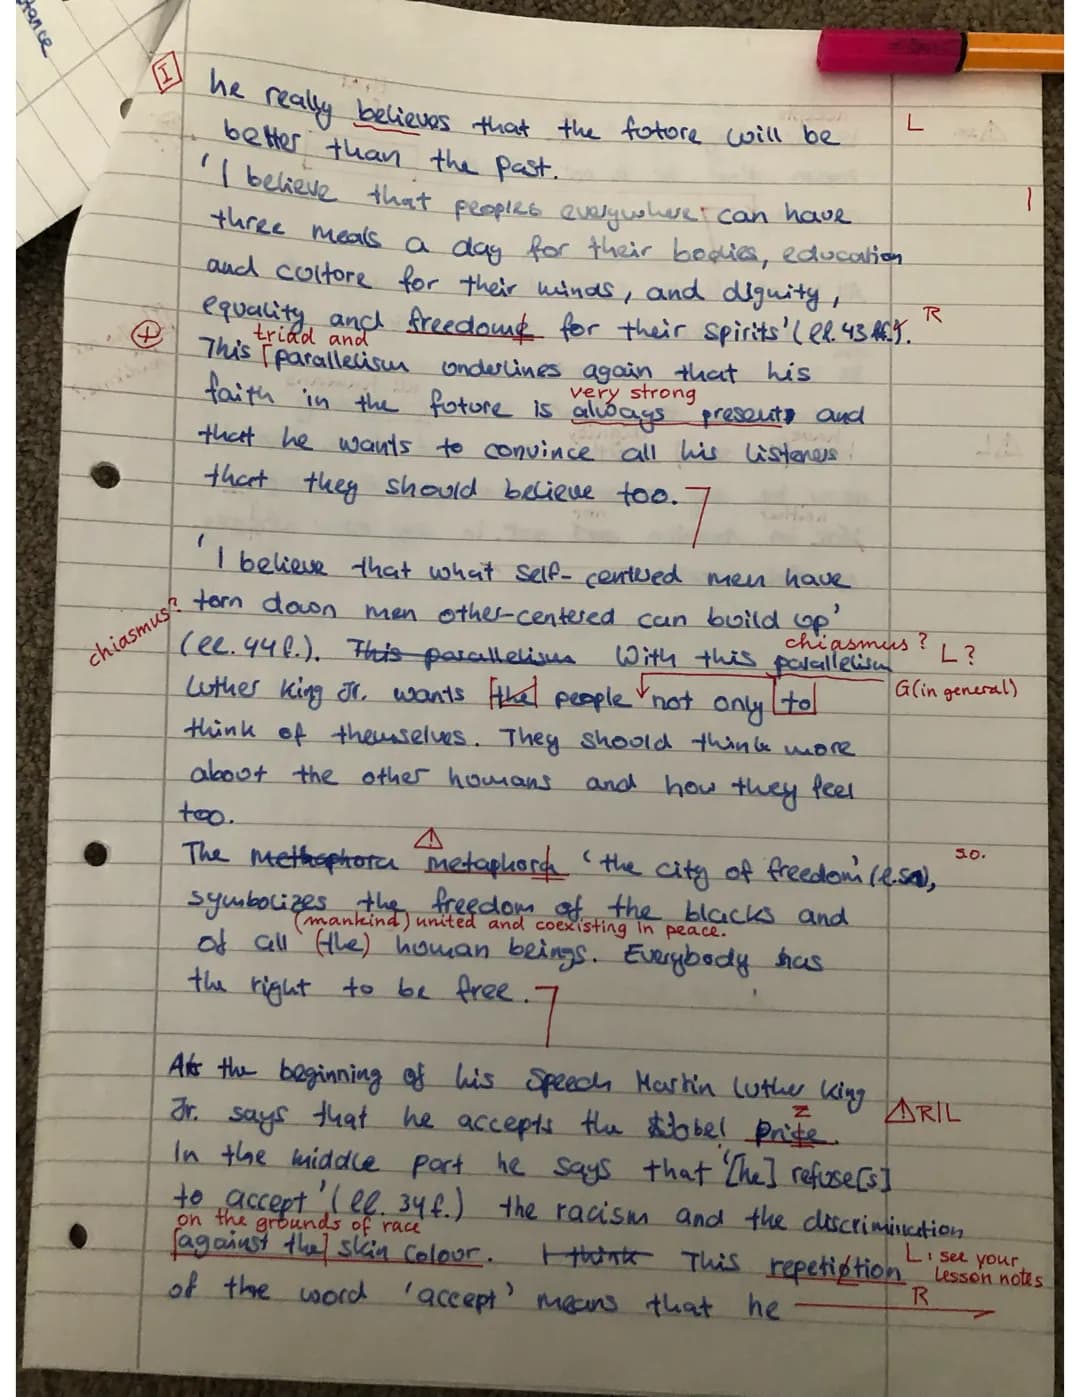 tance
I
he really believes that the future will be L
better than the past.
'I believe that peoples everywhere can have
three meals a day for their bodies, education
and culture for their minds, and dignity,
equality and freedom for their spirits' (ll. 43 ff.). R
+
triad and
This parallelism underlines again that his
very strong
faith in the future is always present and
that he wants to convince all his listeners
that they should believe too.
'I believe that what self-centered men have
torn down men other-centered can build up'
chiasmus?
chiasmus? L?
(ll. 44 f.). This parallelism With this parallelism
Luther King Jr. wants [the] people not only [to] G(in general)
think of themselves. They should think more
about the other humans and how they feel
too.
The methaphora metaphor 'the city of freedom' (l. 50), 50.
symbolizes the freedom of the blacks and
(mankind) united and coexisting in peace.
of all (the) human beings. Everybody has
the right to be free.
At the beginning of his speech Martin Luther King
Jr. says that he accepts the Nobel prize. z R/L
In the middle part he says that '[he] refuse[s]
to accept' (ll. 34 f.) the racism and the discrimination
on the grounds of race
[against the] skin colour. I think This repetition L: see your lesson notes
of the word 'accept' means that he R